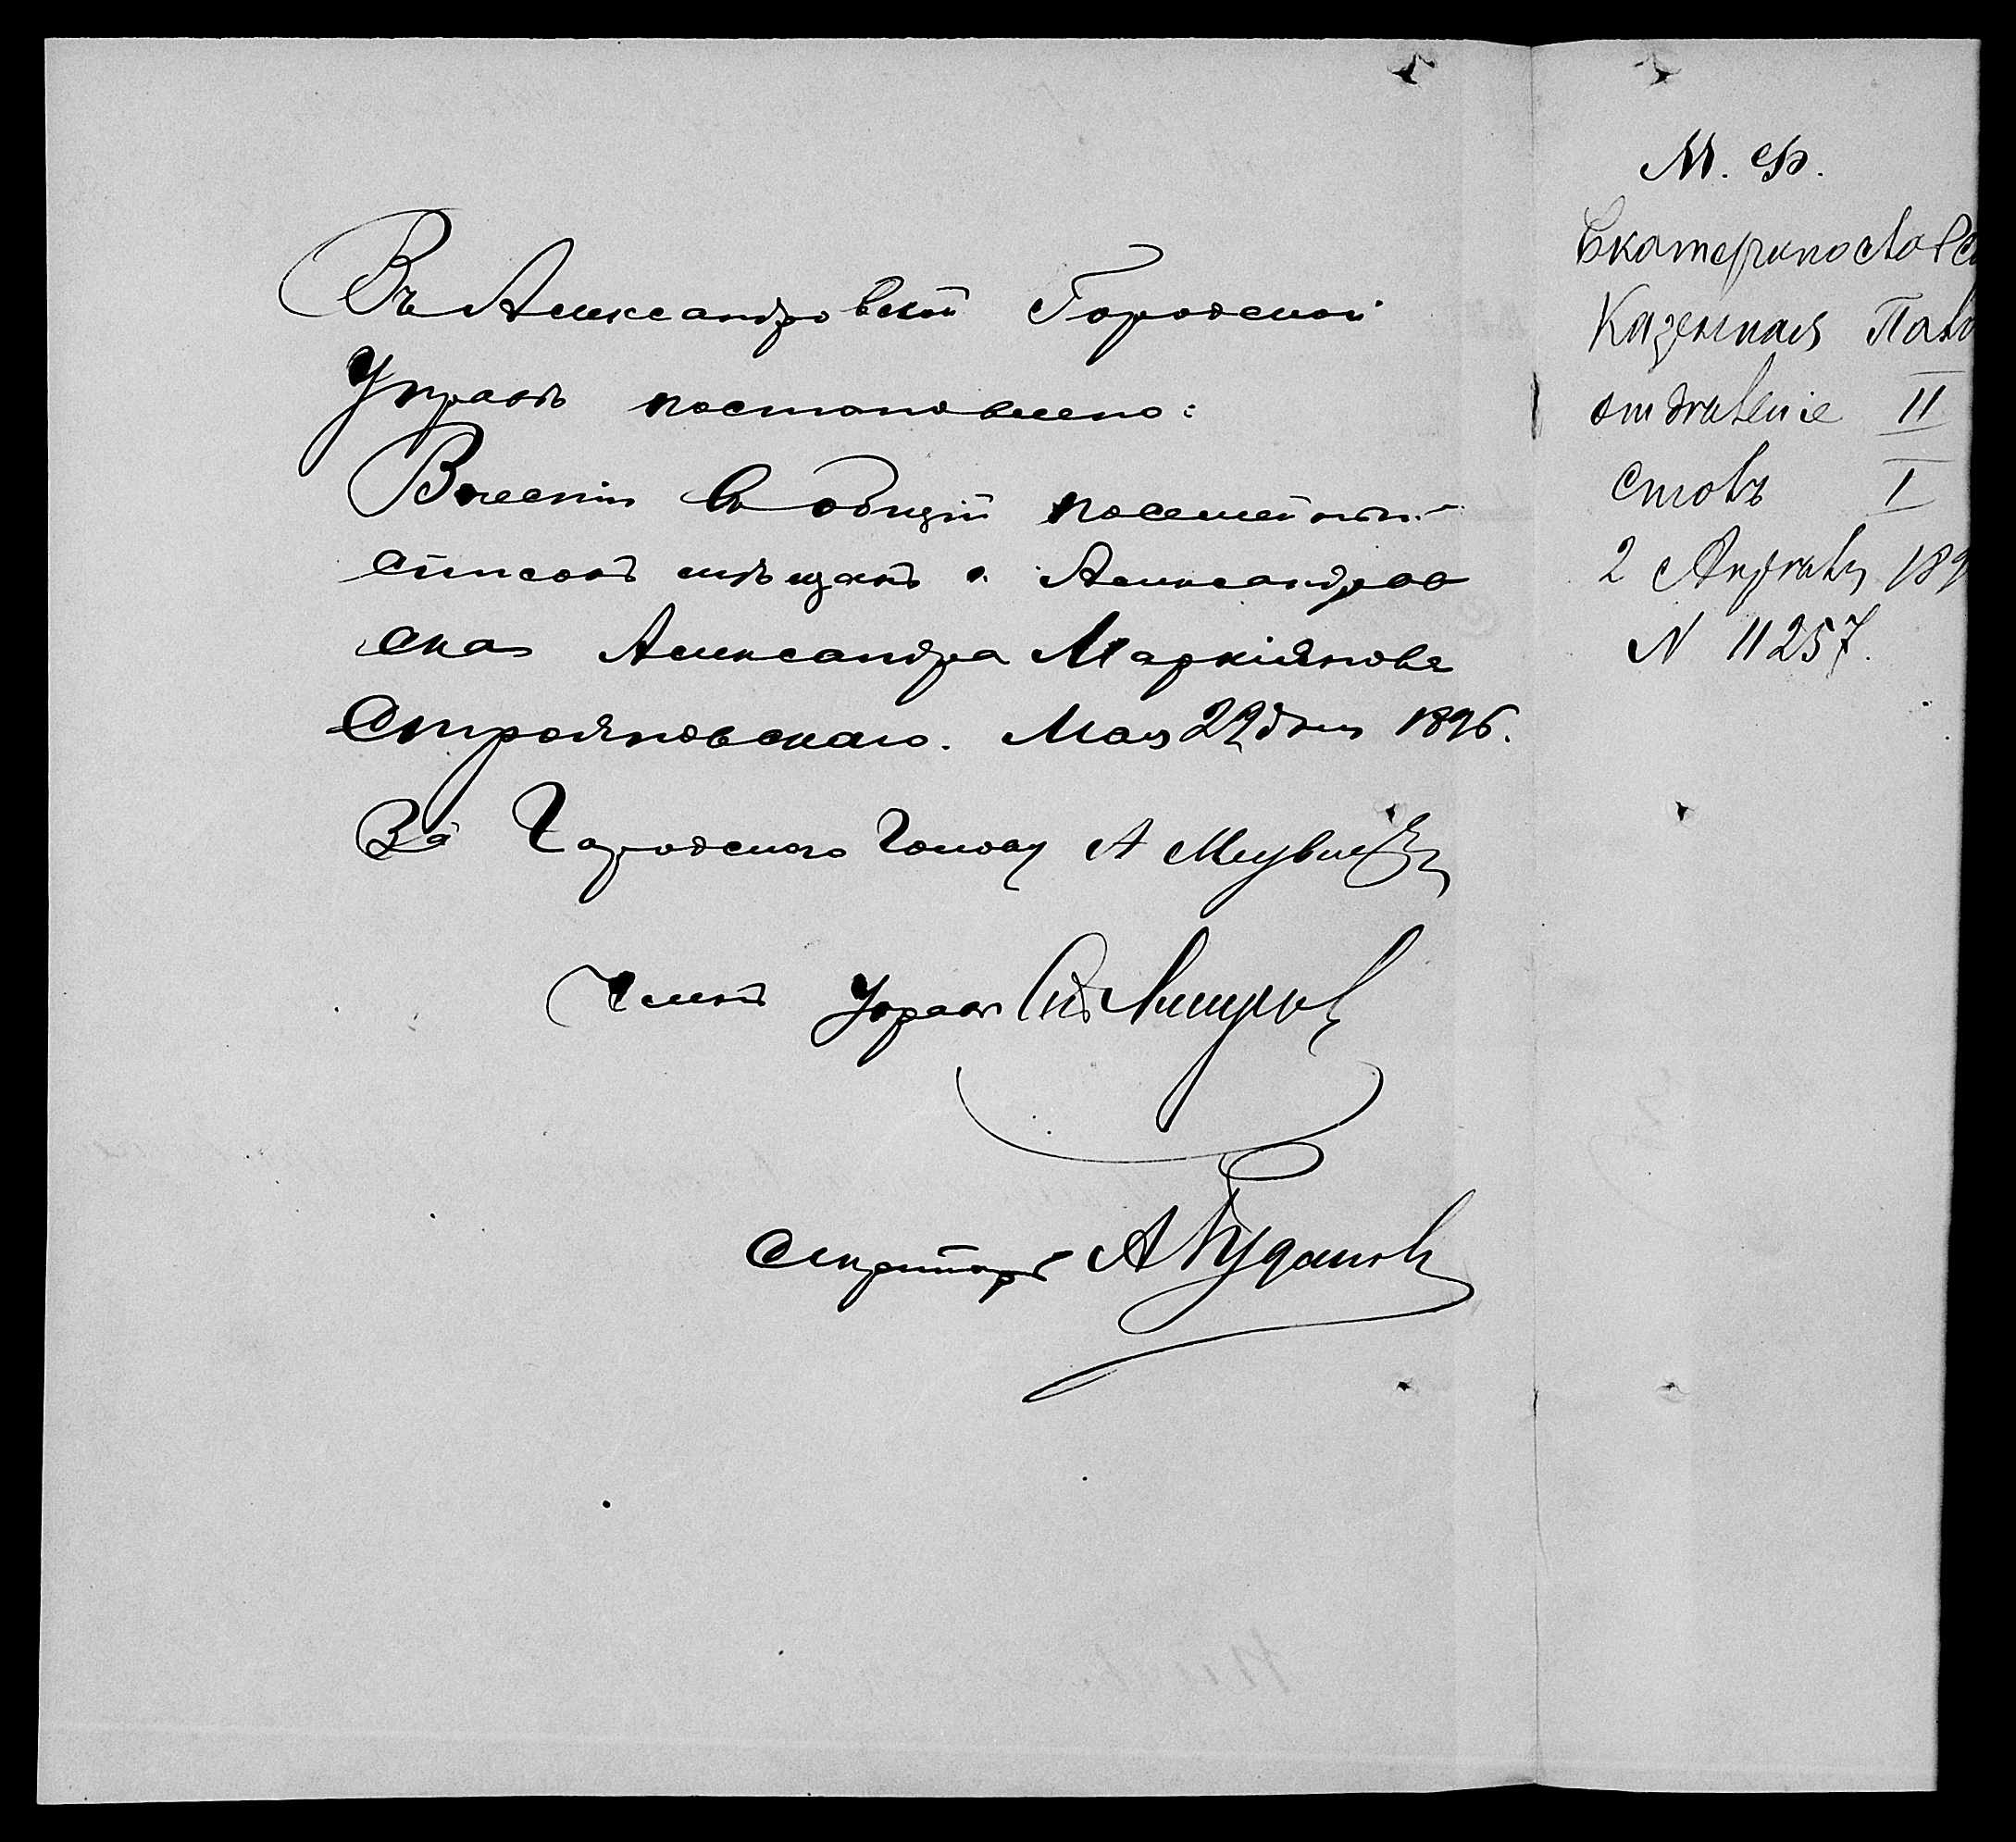 Въ Александровской Городской
Управѣ постановлено:
Внести въ общій посемейный
списокъ мѣщанъ г. Александров
ска Александра Маркіянова
Строяновскаго. Мая 22 дня 1896.
За Городского Голову А
Членъ Управы
Секретарь А Будановъ
М. Ф.
Екатеринославс
Казенная Пала
отдѣленіе II
столъ I
2 Апрѣля 189
N 11257.